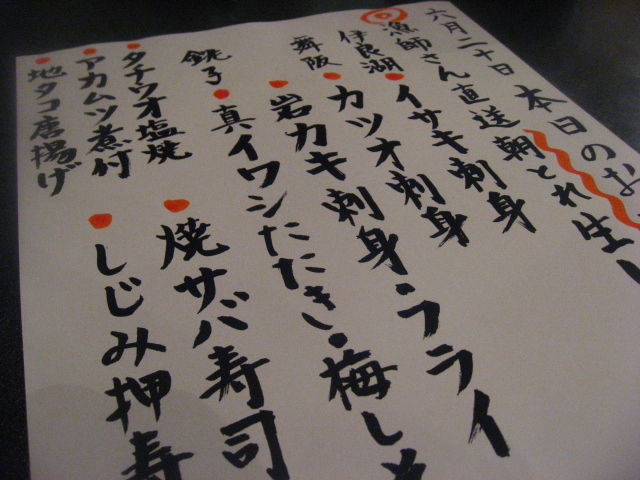 六月二十日 本日のな
漁師さん直送朝とれ生し
伊良湖 イサキ刺身
舞阪 カツオ刺身
岩カキ刺身・フライ
銚子 真イワシたたき・梅し
タチウオ塩焼
アカムツ煮付
地タコ唐揚げ
焼サバ寿司
しじみ押寿